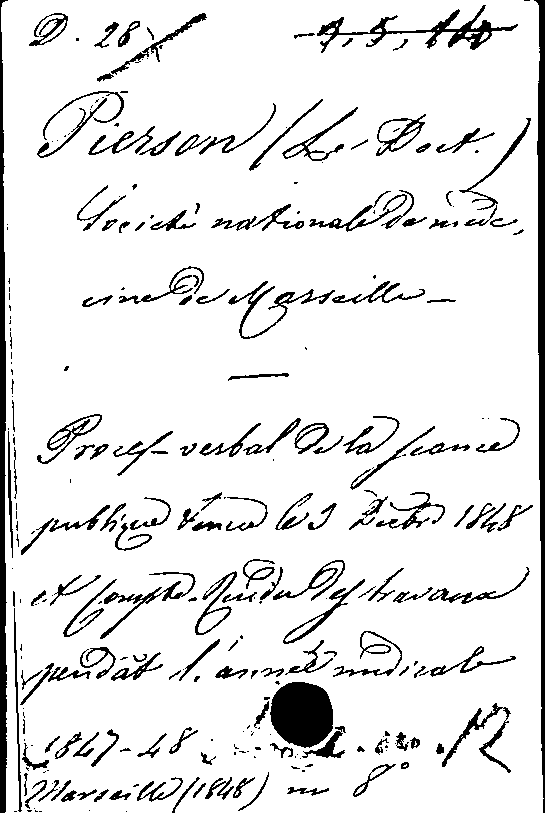 D. 28
Pierson (Le Doct.)
Société nationale de méde,
cine de Marseille —
Procès-verbal de la séance
publique tenue le 3 Décbre 1848
et Compte-Rendu des travaux
pendãt l'année médicale
1847-48 12
Marseille (1848) in 8°